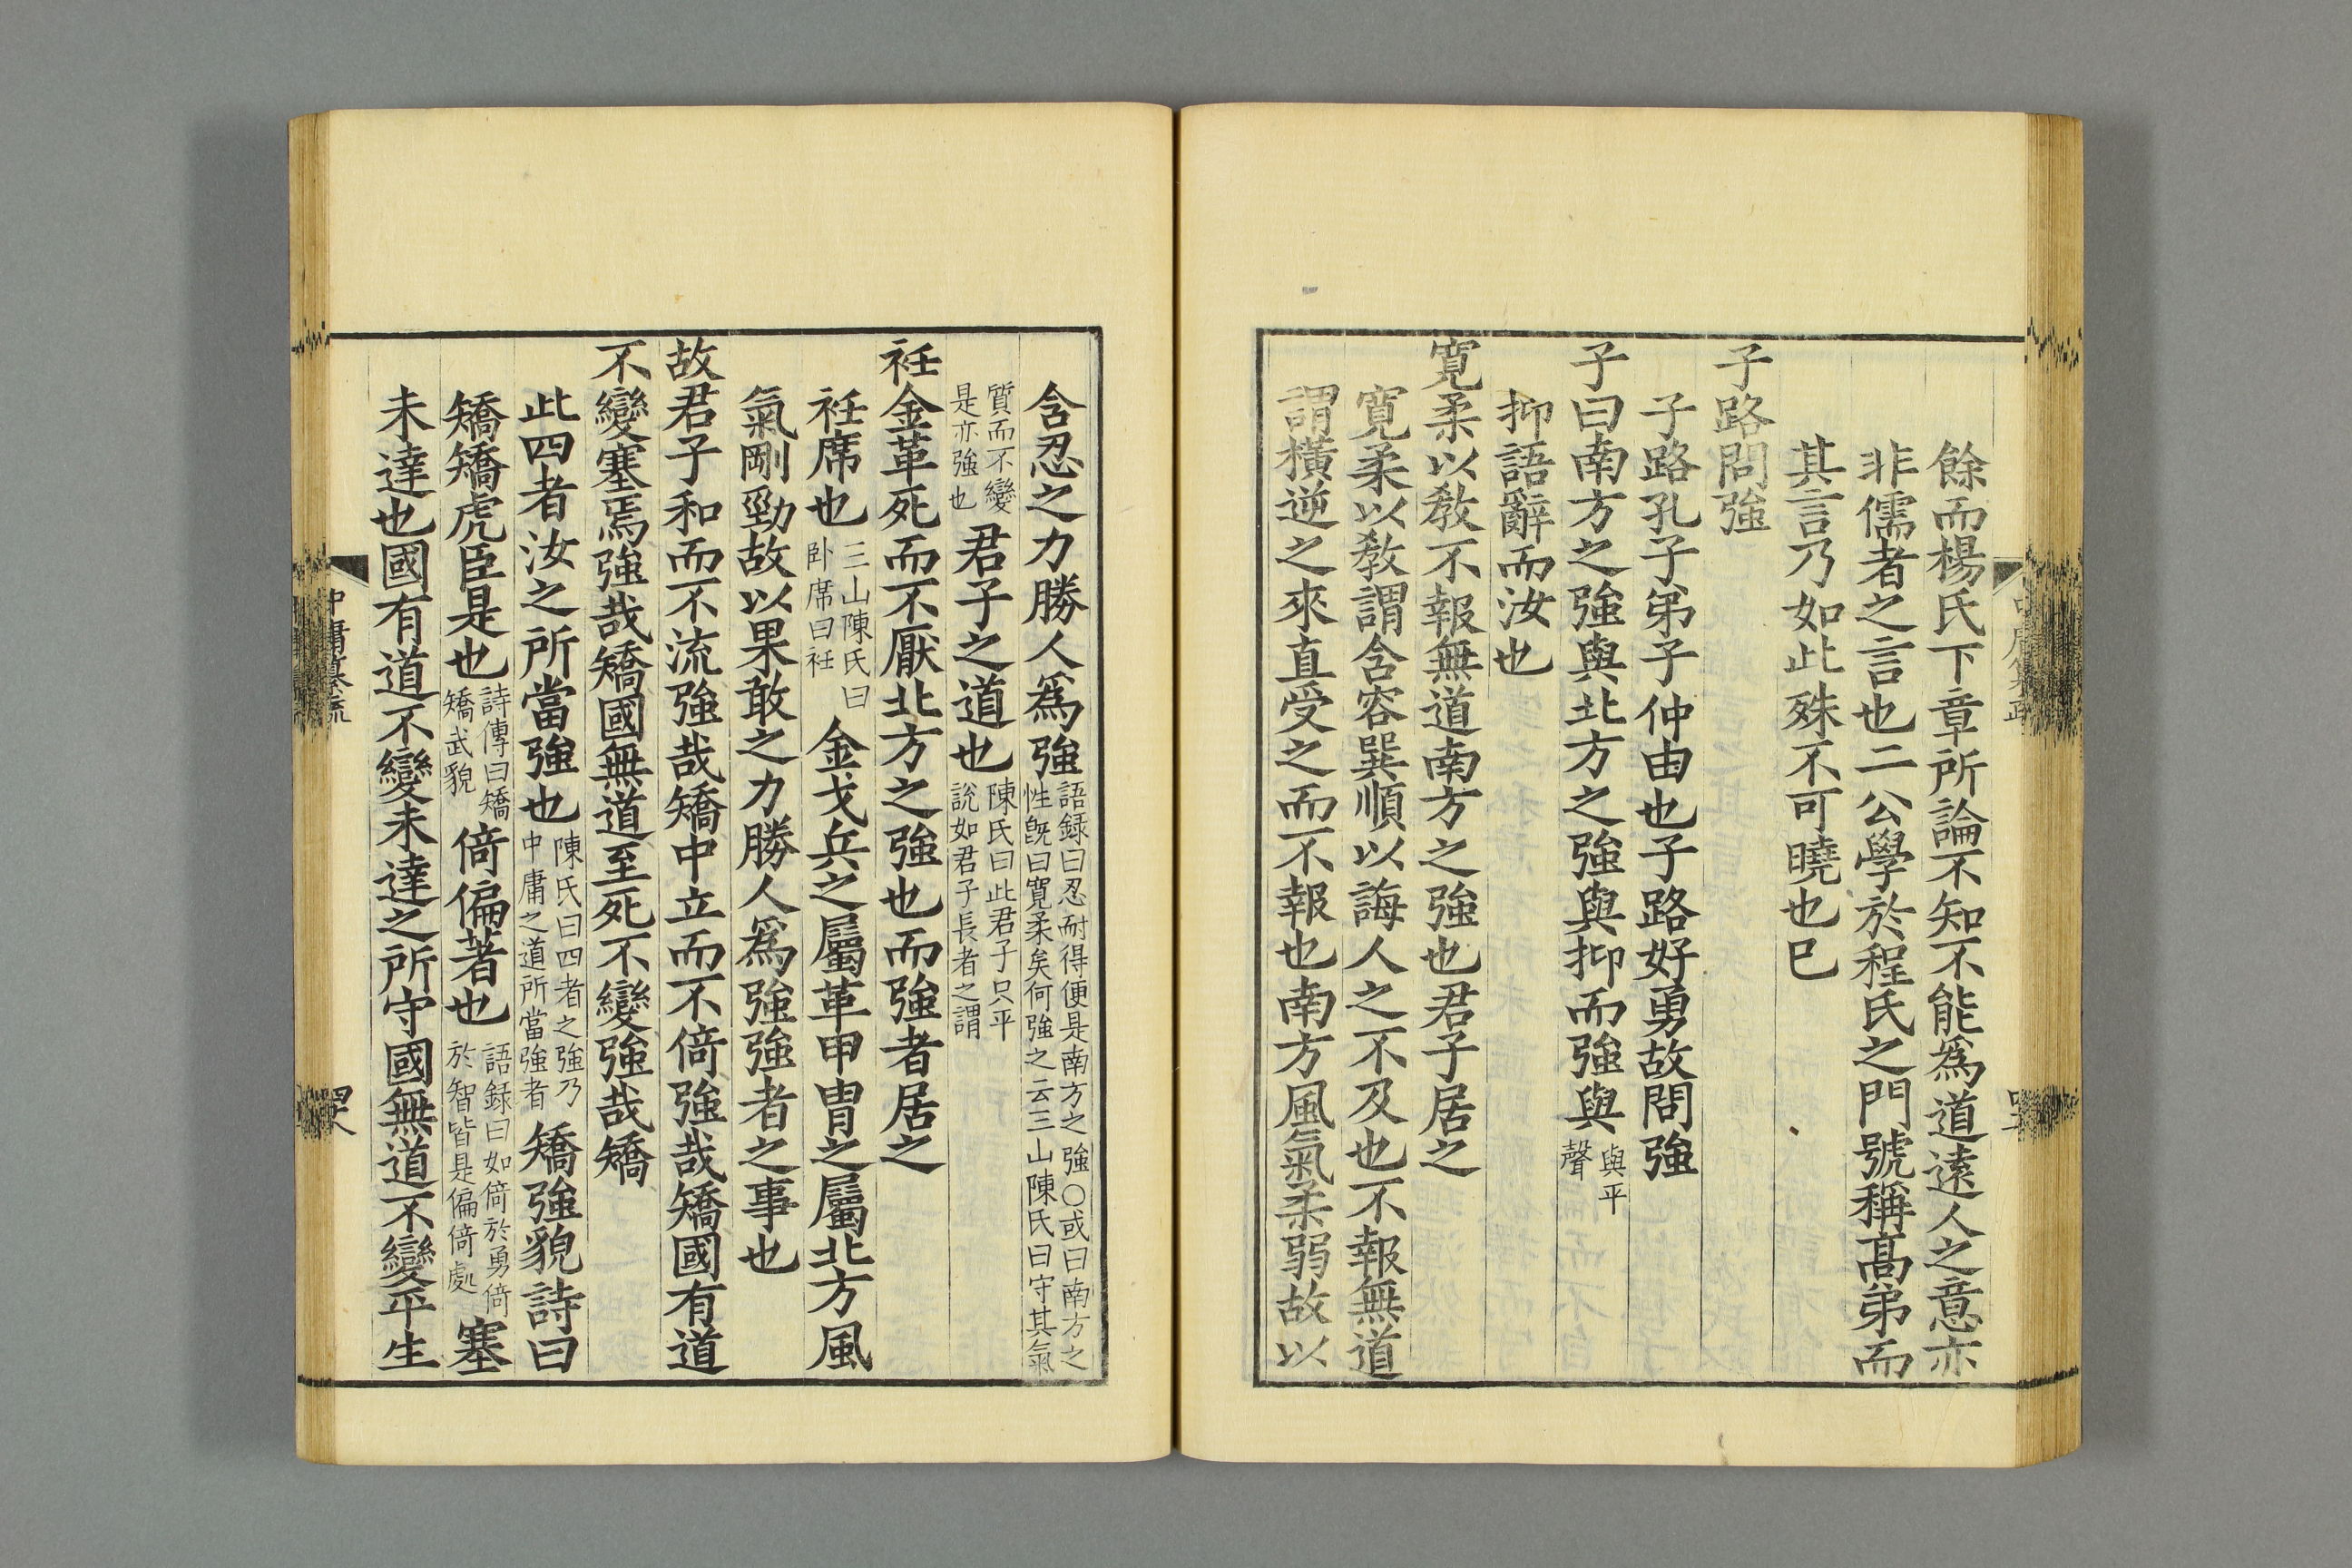 餘而楊氏下章所論不知不能爲道遠人之意亦
非儒者之言也二公學於程氏之門號稱髙弟而
其言乃如此殊不可曉也巳
子路問強
子路孔子弟子仲由也子路好勇故問強
子曰南方之強與北方之強與抑而強與
與平
聲
抑語辭而汝也
寛柔以敎不報無道南方之強也君子居之
寛柔以敎謂含容巽順以誨人之不及也不報無道
謂橫逆之來直受之而不報也南方風氣柔弱故以
含忍之力勝人爲強
語録曰忍耐得便是南方之強○或曰南方之
性旣曰寛柔矣何強之云三山陳氏曰守其氣
質而不變
是亦強也
君子之道也
陳氏曰此君子只平
說如君子長者之謂
衽金革死而不厭北方之強也而強者居之
衽席也
三山陳氏曰
卧席曰衽
金戈兵之屬革甲冑之屬北方風
氣剛勁故以果敢之力勝人爲強強者之事也
故君子和而不流強哉矯中立而不倚強哉矯國有道
不變塞焉強哉矯國無道至死不變強哉矯
此四者汝之所當強也
陳氏曰四者之強乃
中庸之道所當強者
矯強貌詩曰
矯矯虎臣是也
詩傳曰矯
矯武貌
倚偏著也
語録曰如倚於勇倚
於智皆是偏倚處
塞
未達也國有道不變未達之所守國無道不變平生
中庸纂疏